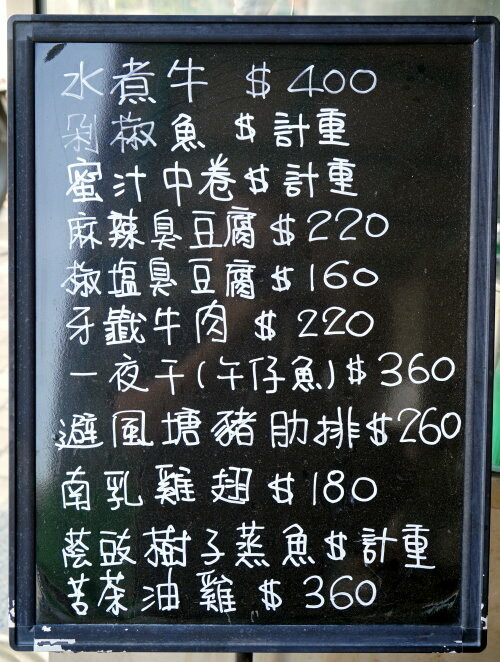 水煮牛 $400
剁椒魚 $計重
蜜汁中卷$計重
麻辣臭豆腐$220
椒塩臭豆腐$160
牙籤牛肉 $220
一夜干(午仔魚)$360
避風塘豬肋排$260
南乳雞翅$180
蔭豉樹子蒸魚$計重
苦茶油雞 $360